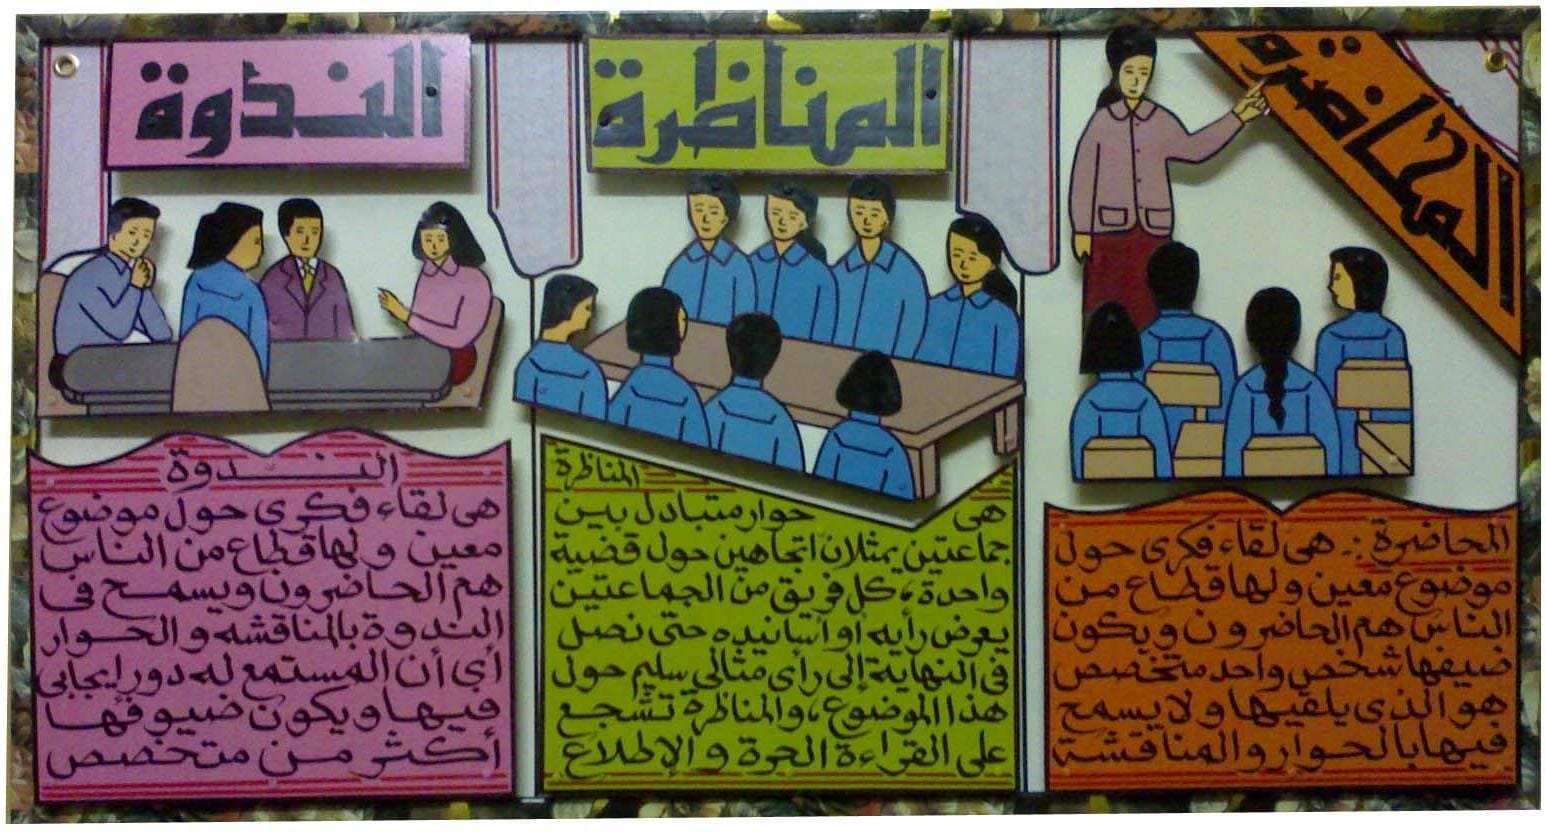 المحاضرة
المحاضرة :- هى لقاء فكرى حول
موضوع معين ولها قطاع من
الناس هم الحاضرون ويكون
ضيفها شخص واحد متخصص
هو الذى يلقيها ولا يسمح
فيها بالحوار والمناقشة
المناظرة
المناظرة
هى حوار متبادل بين
جماعتين يمثلان اتجاهين حول قضية
واحدة ، كل فريق من الجماعتين
يعرض رأيه أو أسانيده حتى نصل
فى النهاية إلى رأى مثالي سليم حول
هذا الموضوع ، والمناظرة تشجع
على القراءة الحرة والإطلاع
الندوة
الندوة
هى لقاء فكرى حول موضوع
معين ولها قطاع من الناس
هم الحاضرون ويسمح فى
الندوة بالمناقشه والحوار
أى أن المستمع له دور إيجابى
فيها ويكون ضيوفها
أكثر من متخصص